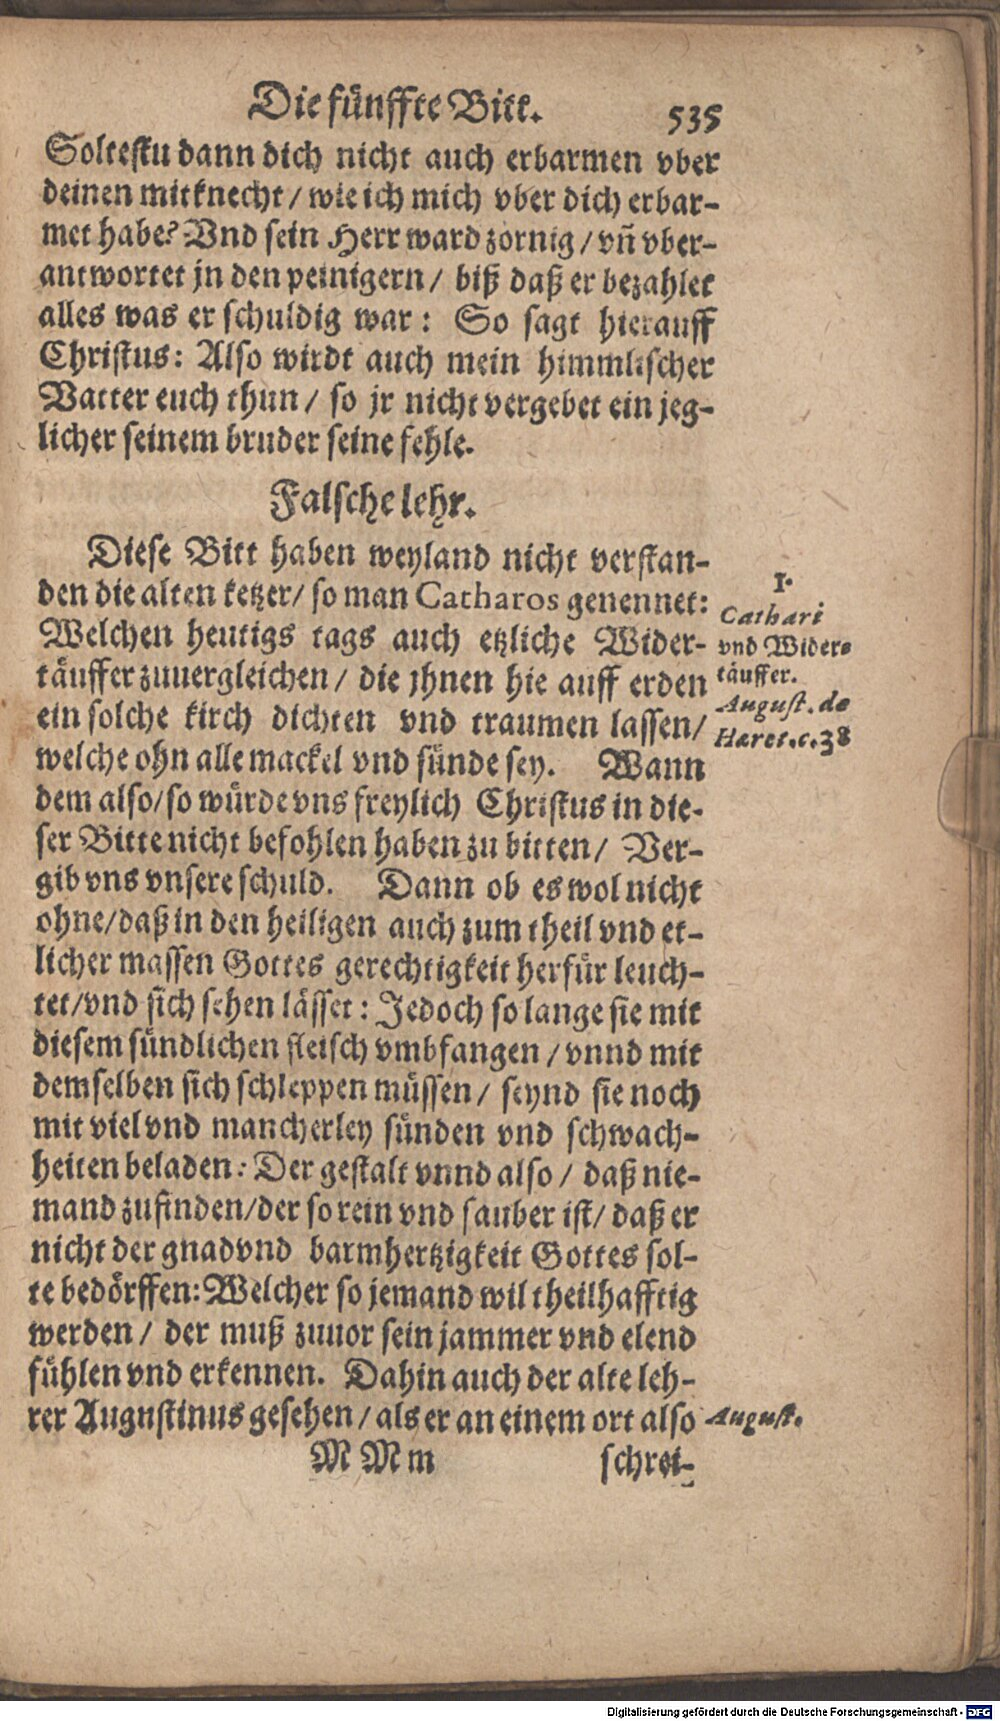 Die fünffte Bitt. 535
Soltestu dann dich nicht auch erbarmen vber
deinen mitknecht / wie ich mich vber dich erbar-
met habe? Vnd sein Herr ward zornig / vñ vber-
antwortet jn den peinigern / biß daß er bezahlet
alles was er schuldig war: So sagt hierauff
Christus: Also wirdt auch mein himmlischer
Vatter euch thun / so jr nicht vergebet ein jeg-
licher seinem bruder seine fehle.
Falsche lehr.
Diese Bitt haben weyland nicht verstan-
den die alten ketzer / so man Catharos genennet:
Welchen heutigs tags auch etzliche Wider-
täuffer zuuergleichen / die jhnen hie auff erden
ein solche kirch dichten vnd traumen lassen /
welche ohn alle mackel vnd sünde sey. Wann
dem also / so würde vns freylich Christus in die-
ser Bitte nicht befohlen haben zu bitten / Ver-
gib vns vnsere schuld. Dann ob es wol nicht
ohne / daß in den heiligen auch zum theil vnd et-
licher massen Gottes gerechtigkeit herfür leuch-
tet / vnd sich sehen lässet: Jedoch so lange sie mit
diesem sündlichen fleisch vmbfangen / vnnd mit
demselben sich schleppen müssen / seynd sie noch
mit viel vnd mancherley sünden vnd schwach-
heiten beladen: Der gestalt vnnd also / daß nie-
mand zufinden / der so rein vnd sauber ist / daß er
nicht der gnad vnd barmhertzigkeit Gottes sol-
te bedörffen: Welcher so jemand wil theilhafftig
werden / der muß zuuor sein jammer vnd elend
fühlen vnd erkennen. Dahin auch der alte leh-
rer Augustinus gesehen / als er an einem ort also
MMm schrei-
1.
Cathari
vnd Wider-
täuffer.
August. de
Haret. c. 38
August.
Digitalisierung gefördert durch die Deutsche Forschungsgemeinschaft - DFG